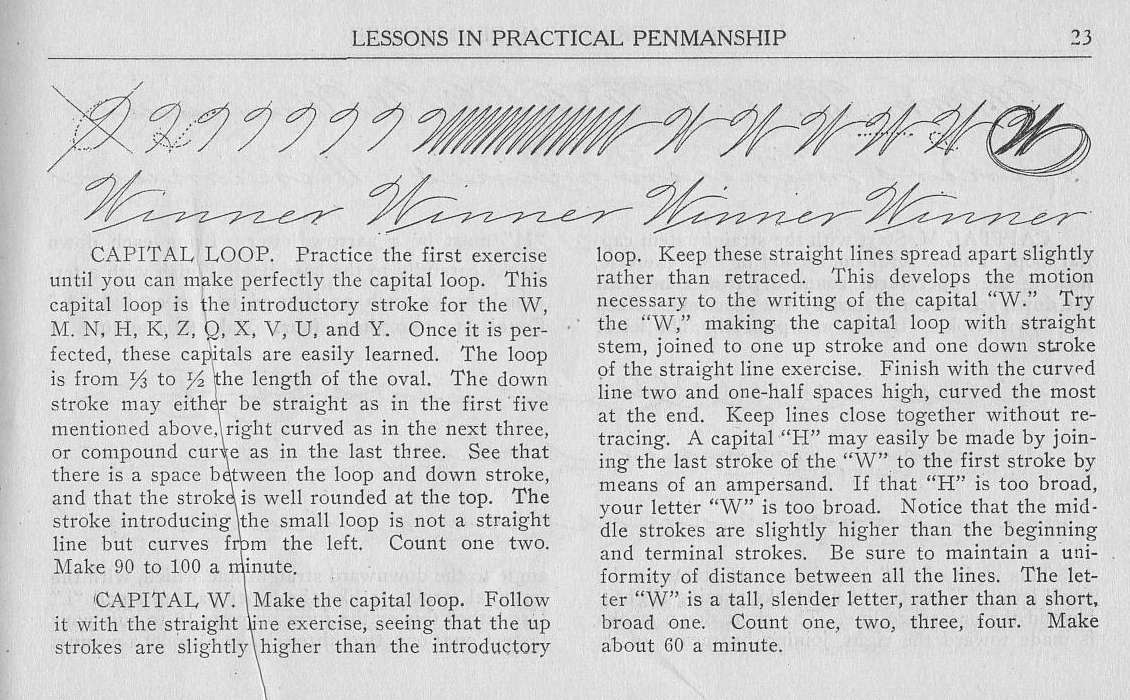 LESSONS IN PRACTICAL PENMANSHIP 23
W W W W W W
Winner Winner Winner Winner
CAPITAL LOOP. Practice the first exercise
until you can make perfectly the capital loop. This
capital loop is the introductory stroke for the W,
M. N, H, K, Z, Q, X, V, U, and Y. Once it is per-
fected, these capitals are easily learned. The loop
is from ⅓ to ½ the length of the oval. The down
stroke may either be straight as in the first five
mentioned above, right curved as in the next three,
or compound curve as in the last three. See that
there is a space between the loop and down stroke,
and that the stroke is well rounded at the top. The
stroke introducing the small loop is not a straight
line but curves from the left. Count one two.
Make 90 to 100 a minute.
CAPITAL W. Make the capital loop. Follow
it with the straight line exercise, seeing that the up
strokes are slightly higher than the introductory
loop. Keep these straight lines spread apart slightly
rather than retraced. This develops the motion
necessary to the writing of the capital “W.” Try
the “W,” making the capital loop with straight
stem, joined to one up stroke and one down stroke
of the straight line exercise. Finish with the curved
line two and one-half spaces high, curved the most
at the end. Keep lines close together without re-
tracing. A capital “H” may easily be made by join-
ing the last stroke of the “W” to the first stroke by
means of an ampersand. If that “H” is too broad,
your letter “W” is too broad. Notice that the mid-
dle strokes are slightly higher than the beginning
and terminal strokes. Be sure to maintain a uni-
formity of distance between all the lines. The let-
ter “W” is a tall, slender letter, rather than a short,
broad one. Count one, two, three, four. Make
about 60 a minute.